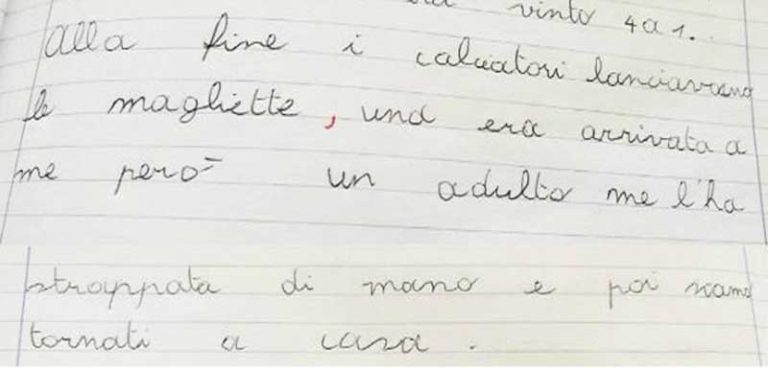 vinto 4 a 1.
Alla fine i calciatori lanciavano
le magliette, una era arrivata a
me però un adulto me l'ha
strappata di mano e poi siamo
tornati a casa.